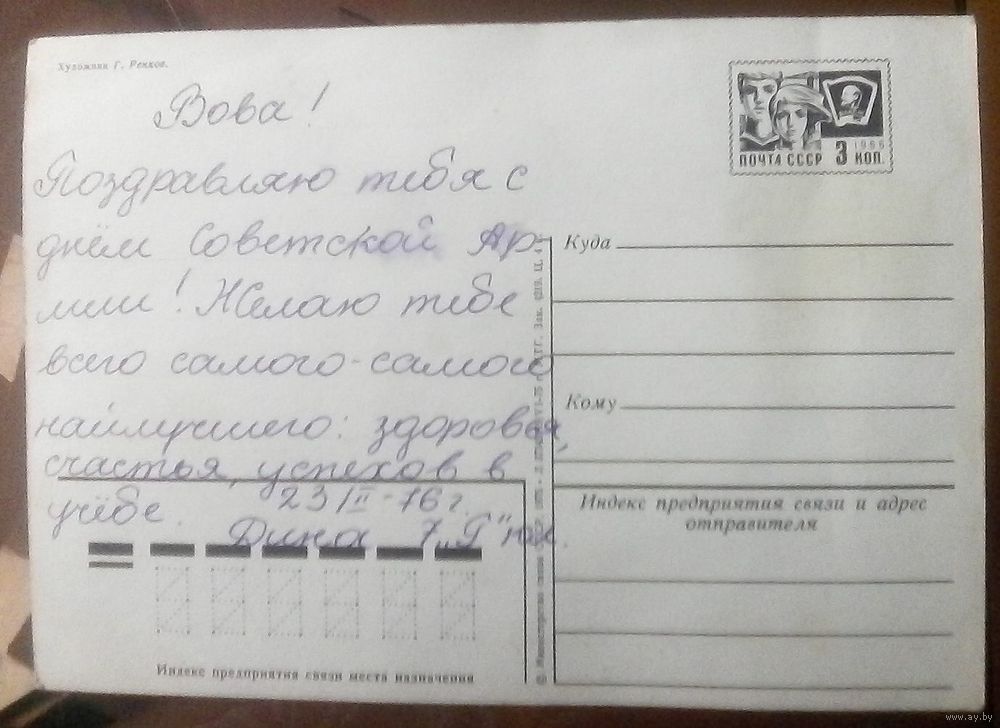 Художник Г. Ренков.
Вова!
Поздравляю тебя с
днём Советской Ар-
мии! Желаю тебе
всего самого-самого
наилучшего: здоровья,
счастья, успехов в
учёбе.
23/II-76 г.
Дина 7 „Г"
ПОЧТА СССР 3 КОП.
1966
Куда
Кому
Индекс предприятия связи и адрес
отправителя
© Министерство связи
Зак.
Индекс предприятия связи места назначения
www.ay.by